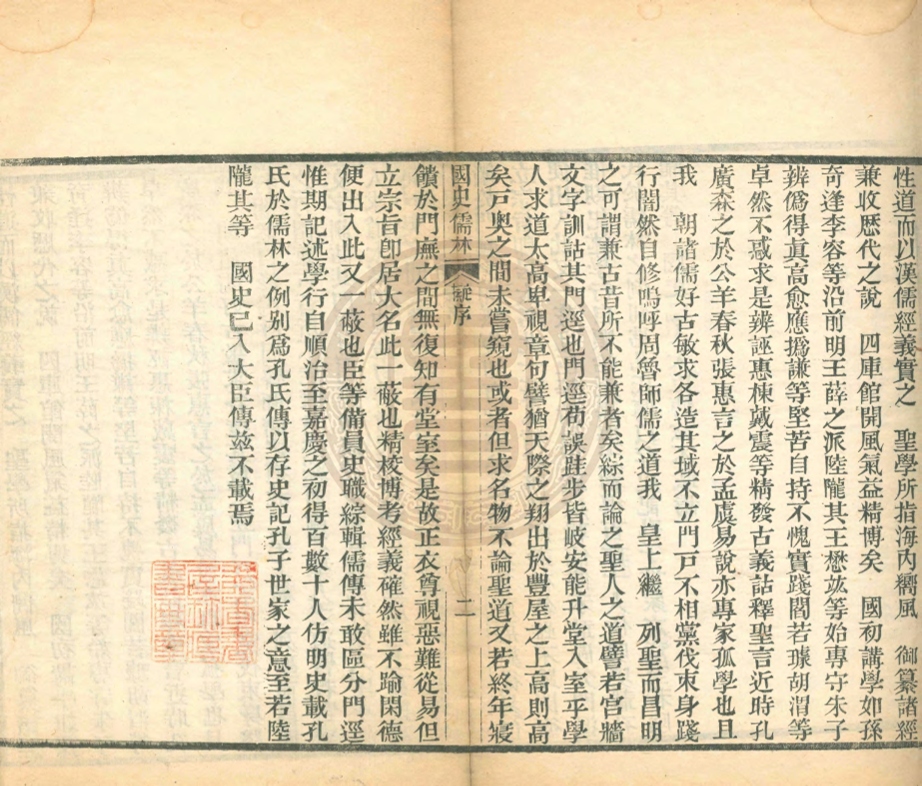 性道而以漢儒經義實之　聖學所指海內嚮風　御纂諸經
兼收歷代之說　四庫館開風氣益精博矣　國初講學如孫
奇逢李容等沿前明王薛之派陸隴其王懋竑等始專守朱子
辨僞得眞高愈應撝謙等堅苦自持不愧實踐閻若璩胡渭等
卓然不惑求是辨誣惠棟戴震等精發古義詁釋聖言近時孔
廣森之於公羊春秋張惠言之於孟虞易說亦專家孤學也且
我　朝諸儒好古敏求各造其域不立門戶不相黨伐束身踐
行闇然自修嗚呼周魯師儒之道我　皇上繼　列聖而昌明
之可謂兼古昔所不能兼者矣綜而論之聖人之道譬若宮牆
文字訓詁其門逕也門逕苟誤跬步皆岐安能升堂入室乎學
人求道太高卑視章句譬猶天際之翔出於豐屋之上高則高
矣戶奧之間未嘗窺也或者但求名物不論聖道又若終年寢
國史儒林　序　二
饋於門廡之間無復知有堂室矣是故正衣尊視惡難從易但
立宗旨卽居大名此一蔽也精校博考經義確然雖不踰閑德
便出入此又一蔽也臣等備員史職綜輯儒傳未敢區分門逕
惟期記述學行自順治至嘉慶之初得百數十人仿明史載孔
氏於儒林之例別爲孔氏傳以存史記孔子世家之意至若陸
隴其等　國史已入大臣傳茲不載焉